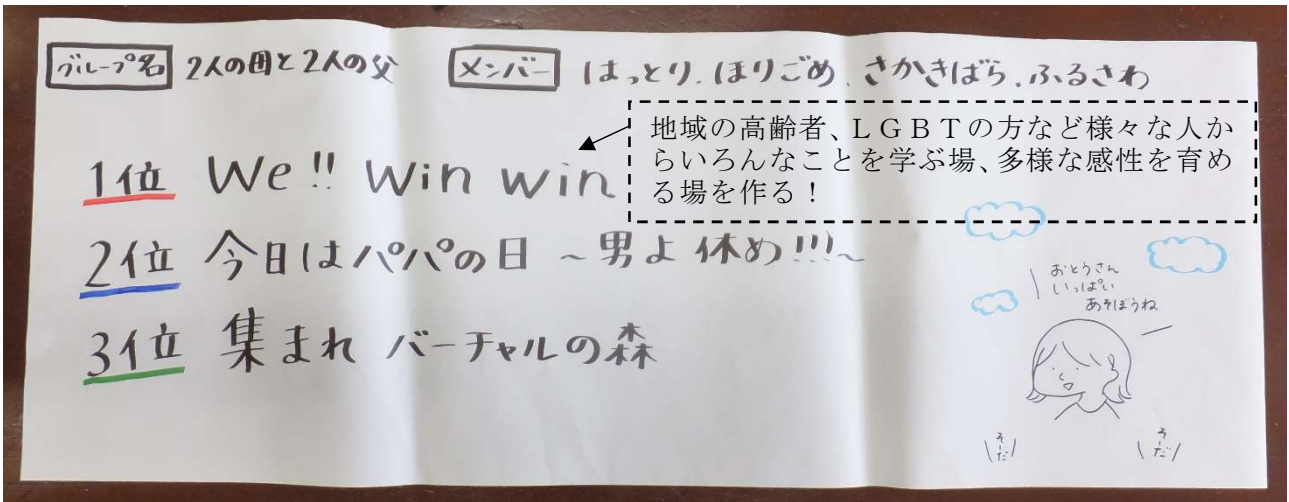 グループ名 2人の母と2人の父 メンバー はっとり、ほりごめ、さかきばら、ふるさわ
地域の高齢者、LGBTの方など様々な人か
らいろんなことを学ぶ場、多様な感性を育め
る場を作る！
1位 We!! Win win
2位 今日はパパの日 ~男よ 休め!!!~
3位 集まれ バーチャルの森
おとうさん
いっぱい
あそぼうね
そーだ
そーだ